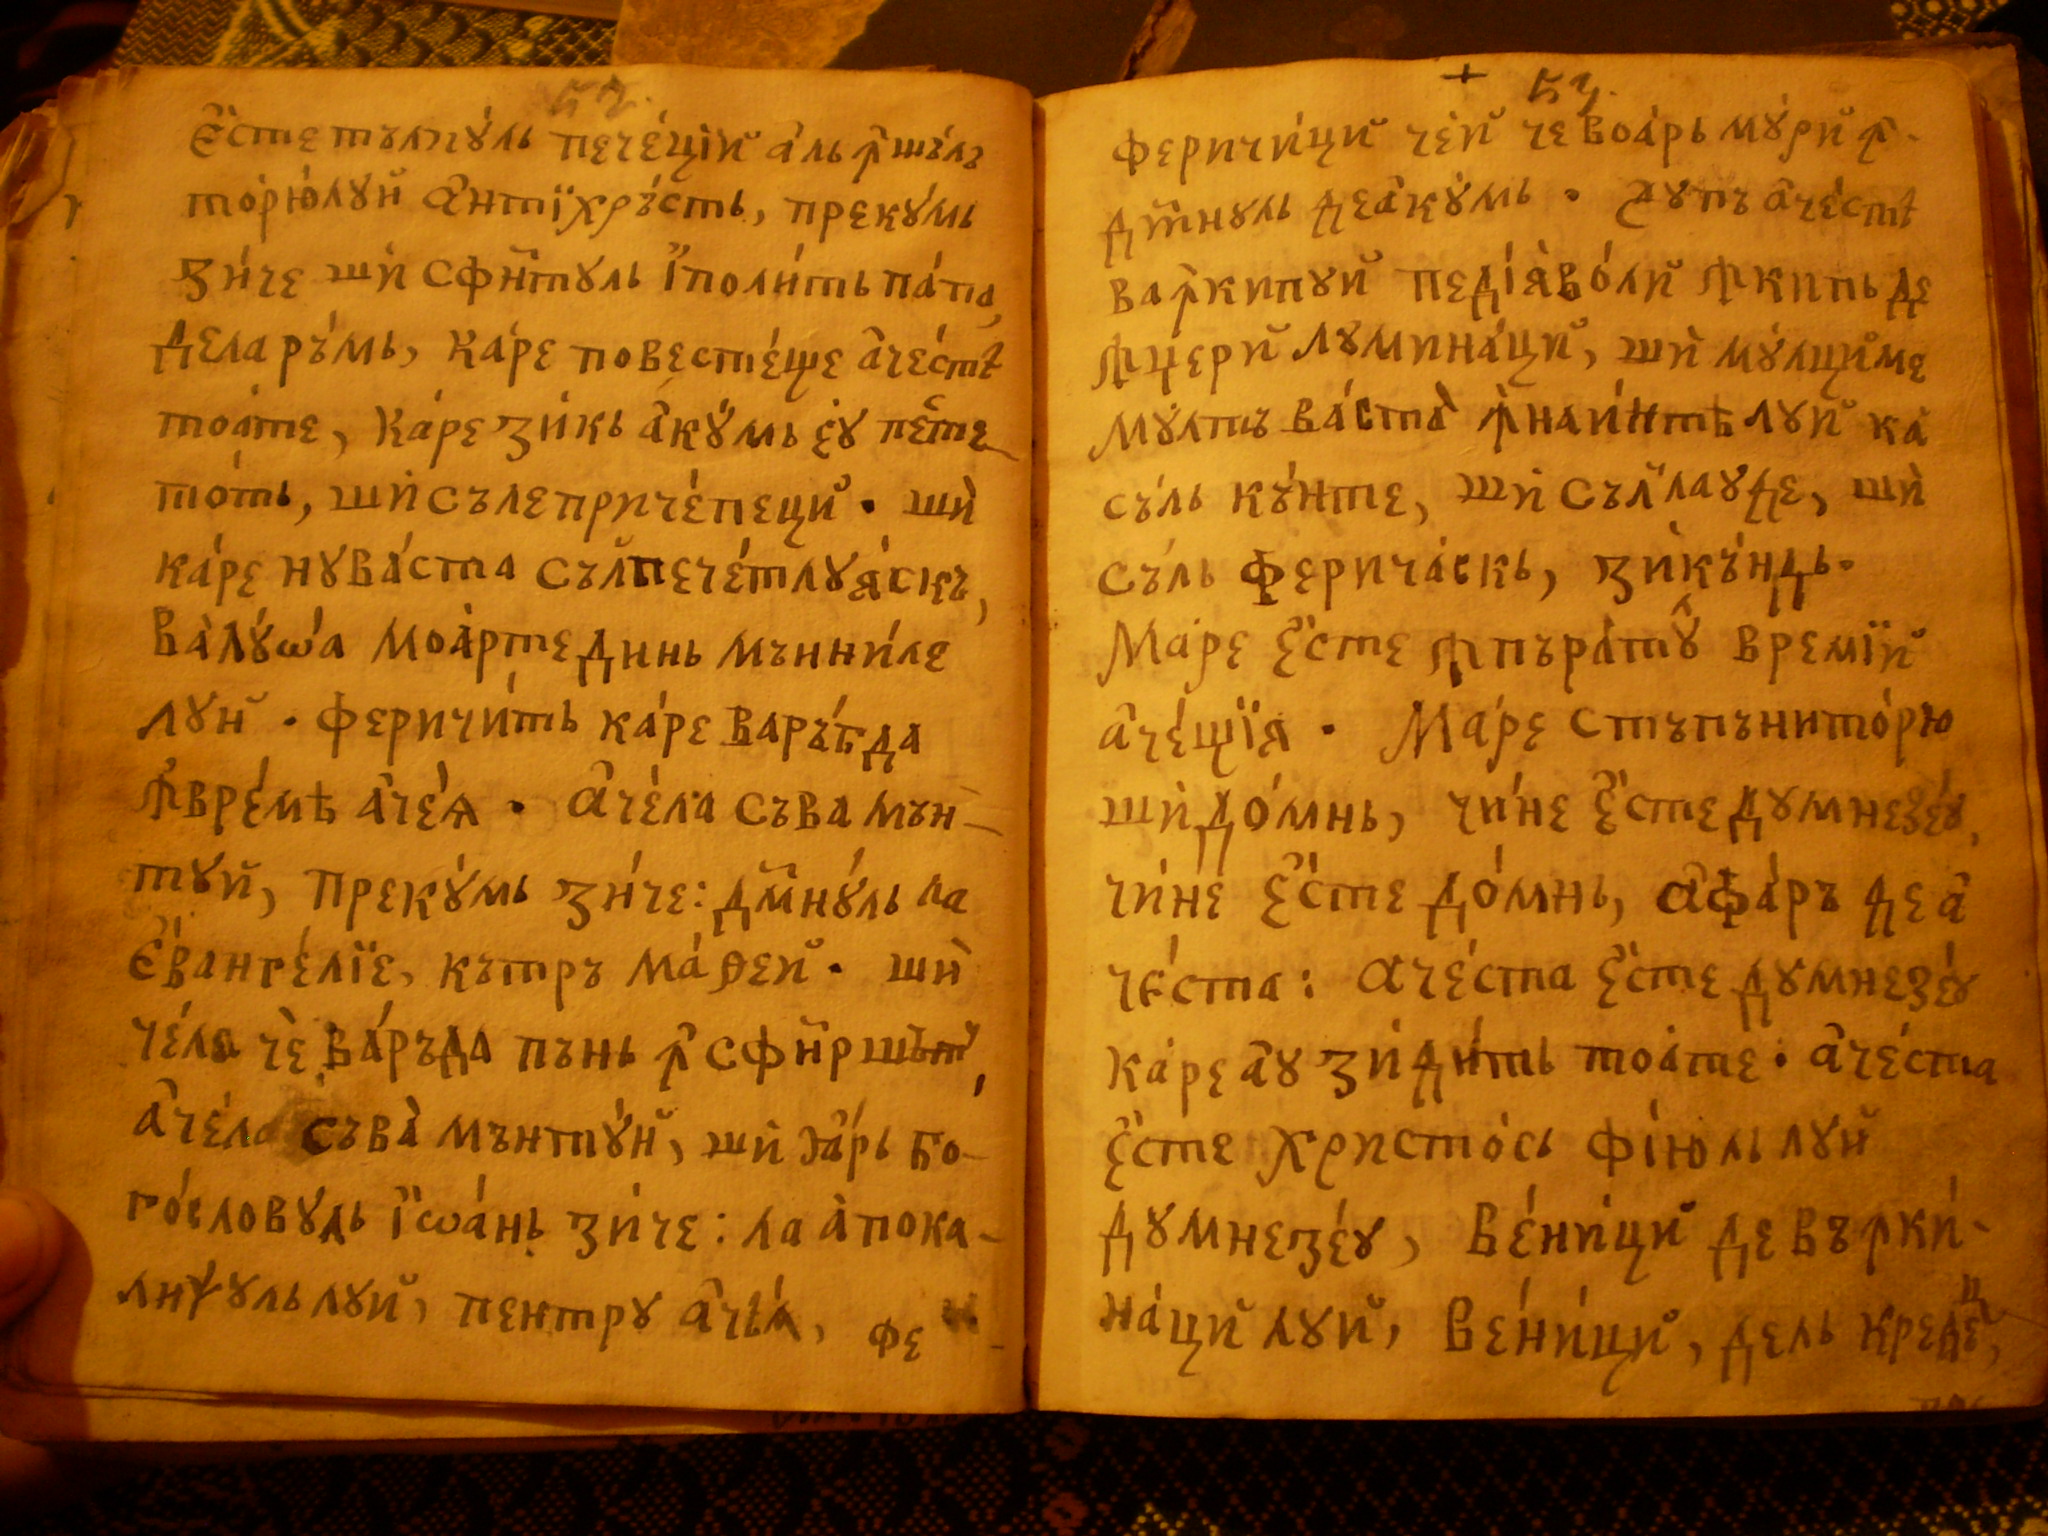 є҆́сте тълкꙋ́ль пече́ції а҆́ль ꙟ҆шъ́лъ
то́рюлꙋй а҆нтїхръ́сть, прекꙋ́мь
зи́че шѝ сфн҃тꙋль і҆поли́ть па́па,
дела ръ́мь, ка́ре повесте́ще а҆че́стѣ
тоа́те, ка́ре зи́кь а҆кꙋ́мь є҆ꙋ пе́сте
то́ть, шѝ сълепри́че́пецй. шѝ
ка́ре нꙋва́ста съ́лпече́тлꙋя́скъ,
ва̀лꙋѡ́а моа́рте динь мънні́ле
лꙋй. фери́чи́ть ка́ре варъ́бда
ꙟ҆вре́мѣ а҆че́ѧ. а҆че́ла съва мън-
тꙋй, прекꙋ́мь зи́че: дм҃нꙋ́ль ла
є҆ѵанге́лїе, кътръ ма́ѳей. шѝ
че́ла чѐ ва́ръда пънь ꙟ҆ сфн҃ршъ́т,
а҆че́ла съва̀ мънтꙋ́й, шѝ ꙗ҆́рь бо-
го́словꙋль і҆ѡа́нь зи́че: ла а҆пока-
ли́ѱꙋльлꙋй, пентрꙋ а҆чѣ́ѧ, фе
53.
феричи́цй че́й че воа́рь мꙋ́рй ꙟ҆-
дм҃нꙋль деа҆кꙋ́мь. дꙋпъ а҆че́стѣ
ва ꙟ҆кипꙋй педїѧ́во́лй ꙟ҆кипь де
ꙟ҆церй лꙋмина́цй, шѝ мꙋ́лциме
мꙋ́лтъ ва́ста̀ ꙟ҆наи́нтѣ лꙋй ка̀
съ́ль къ́нте, шѝ съ́л лаꙋде, шѝ
съ́ль ферича́скь, зи́къ́ндь.
Ма́ре є҆́сте ꙟ҆пъра́тꙋ́л време́їй
а҆че́щїѧ. Ма́ре стъпънито́рю
шѝ до́мнь, чи́не є҆́сте дꙋмнезе́ꙋ,
чи́не є҆́сте до́мнь, а҆фа́ръ де а҆
че́ста: а҆че́ста є҆́сте дꙋмнезе́ꙋ
ка́ре а҆ꙋ зиди́ть тоа́те. а҆че́ста
є҆́сте хрїсто́сь фі́юль лꙋй
дꙋмнезе́ꙋ, ве́ни́цй де въ ꙟки́-
на́цй лꙋй, ве́ни́цй, дель креде́ц,